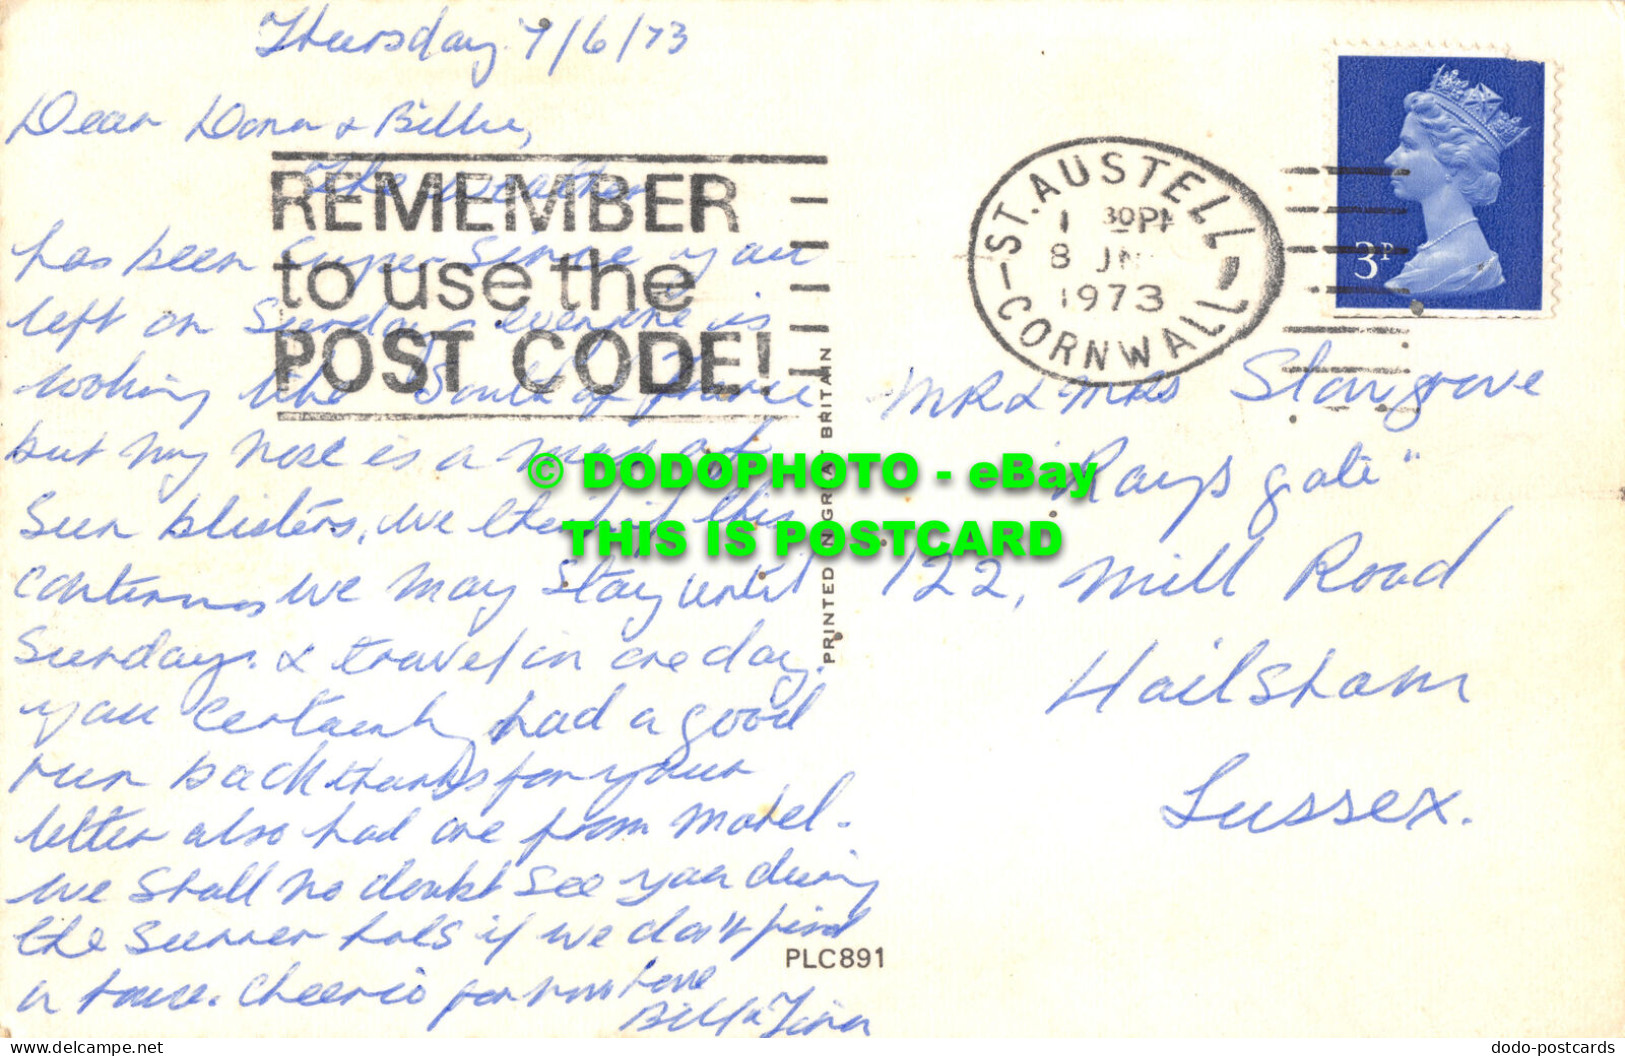 Thursday 7/6/73
Dear Dora & Billie,
The weather
has been super since you
left on Sunday & everyone is
looking like South of France
but my nose is a mass of
Sun blisters, we think if this
continues we may stay until
Sunday. & travel in one day.
you certainly had a good
run back thanks for your
letter also had one from Mabel.
we shall no doubt see you during
the summer hols if we don't find
a house. Cheerio for now love
Bill &
REMEMBER
to use the
POST CODE!
ST. AUSTELL
1 30PM
8 JN
1973
CORNWALL
3P
MR & MRS
"Raysgate"
122, Mill Road
Hailsham
Sussex.
PRINTED IN GREAT BRITAIN
PLC891
© DODOPHOTO - eBay
THIS IS POSTCARD
Reminder: protected by copyright - No copy permitted without permission from the owner
dodo-postcards